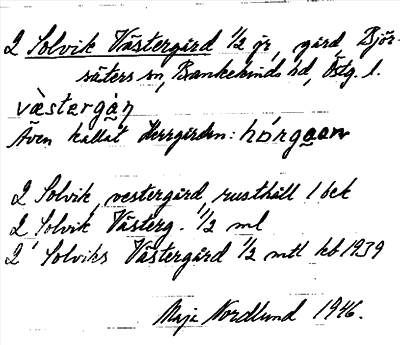 2 Solvik Västergård 1/2 gr, gård, Björ-
säters sn, Bankekinds hd, Östg. l.
vàstergàn
Även kallat Herrgården: hórgaan
2 Solvik, vestergård, rusthåll 1 bek
2 Solvik Västerg. 1/2 ml
2 Solviks Västergård 1/2 mtl kb 1939
Maja Nordlund 1946.